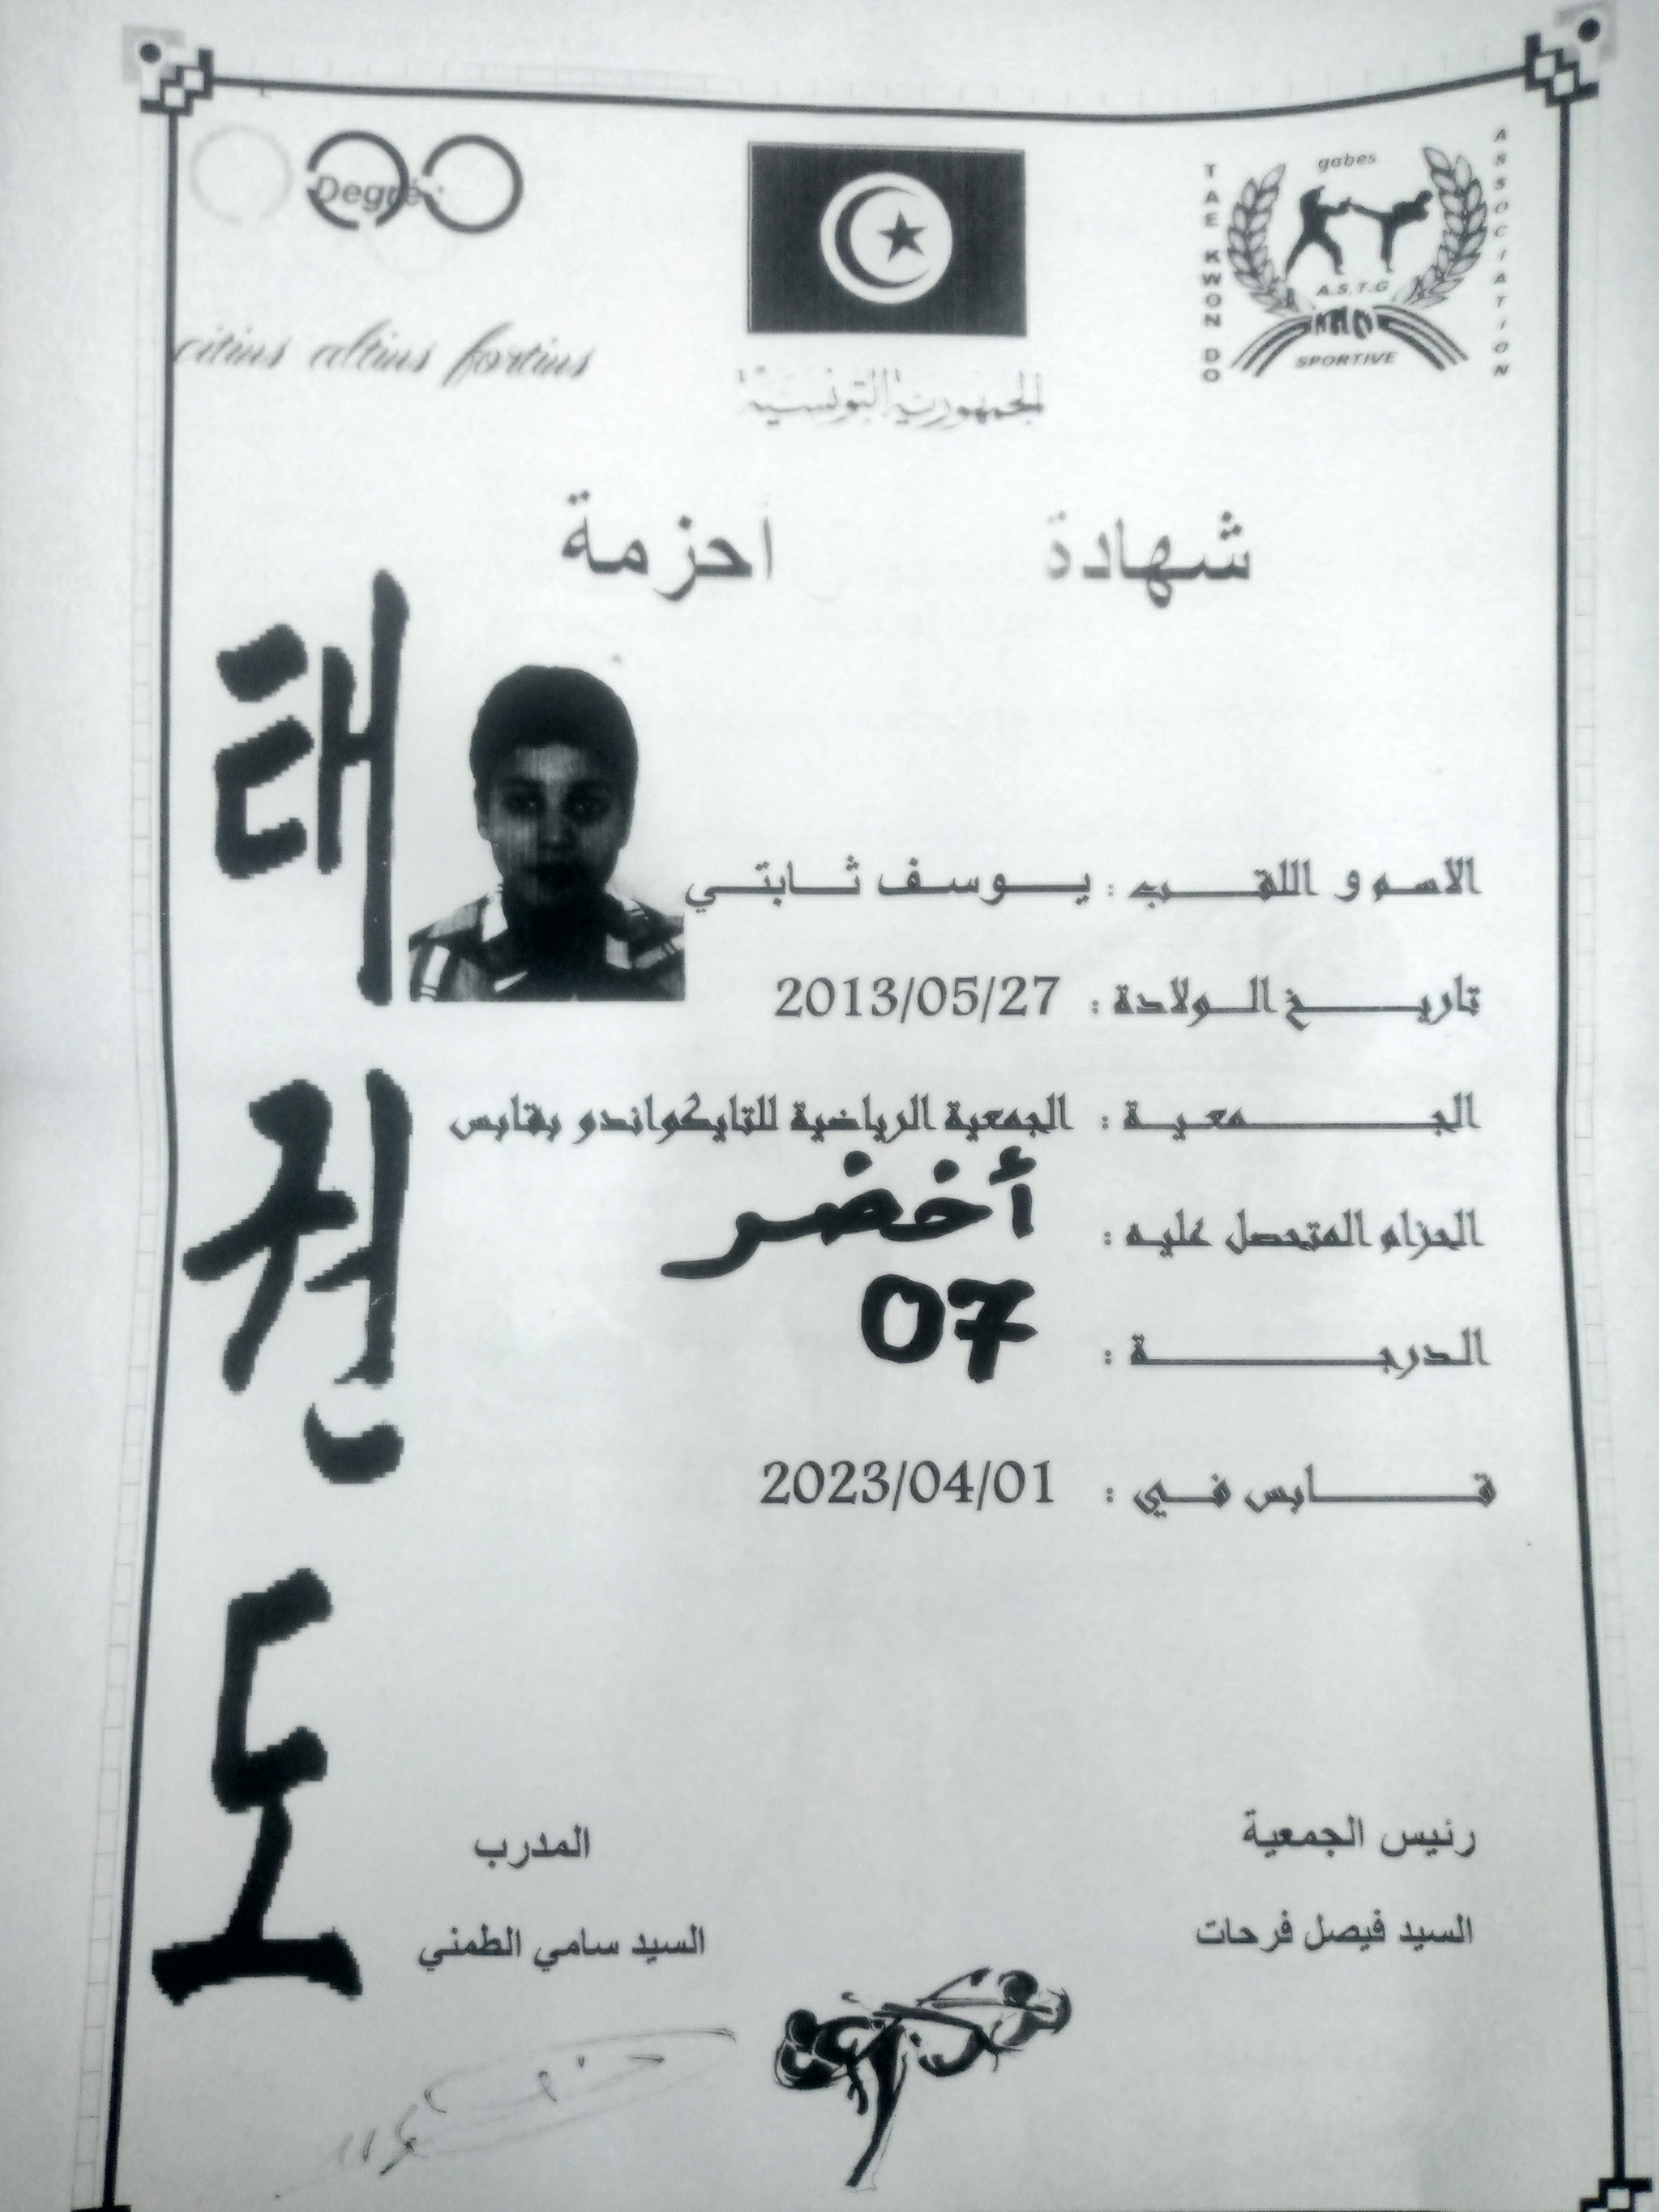 Degré :
citius altius fortius
الجمهورية التونسية
gabes
TAE KWON DO
ASSOCIATION
A.S.T.G
SPORTIVE
شهادة احزمة
태권도
الاسم و اللقب : يوسف ثابتي
تاريخ الولادة : 2013/05/27
الجمعية : الجمعية الرياضية للتايكواندو بقابس
الحزام المتحصل عليه : أخضر
الدرجة : 07
قابس في : 2023/04/01
رئيس الجمعية المدرب
السيد فيصل فرحات السيد سامي الطمني